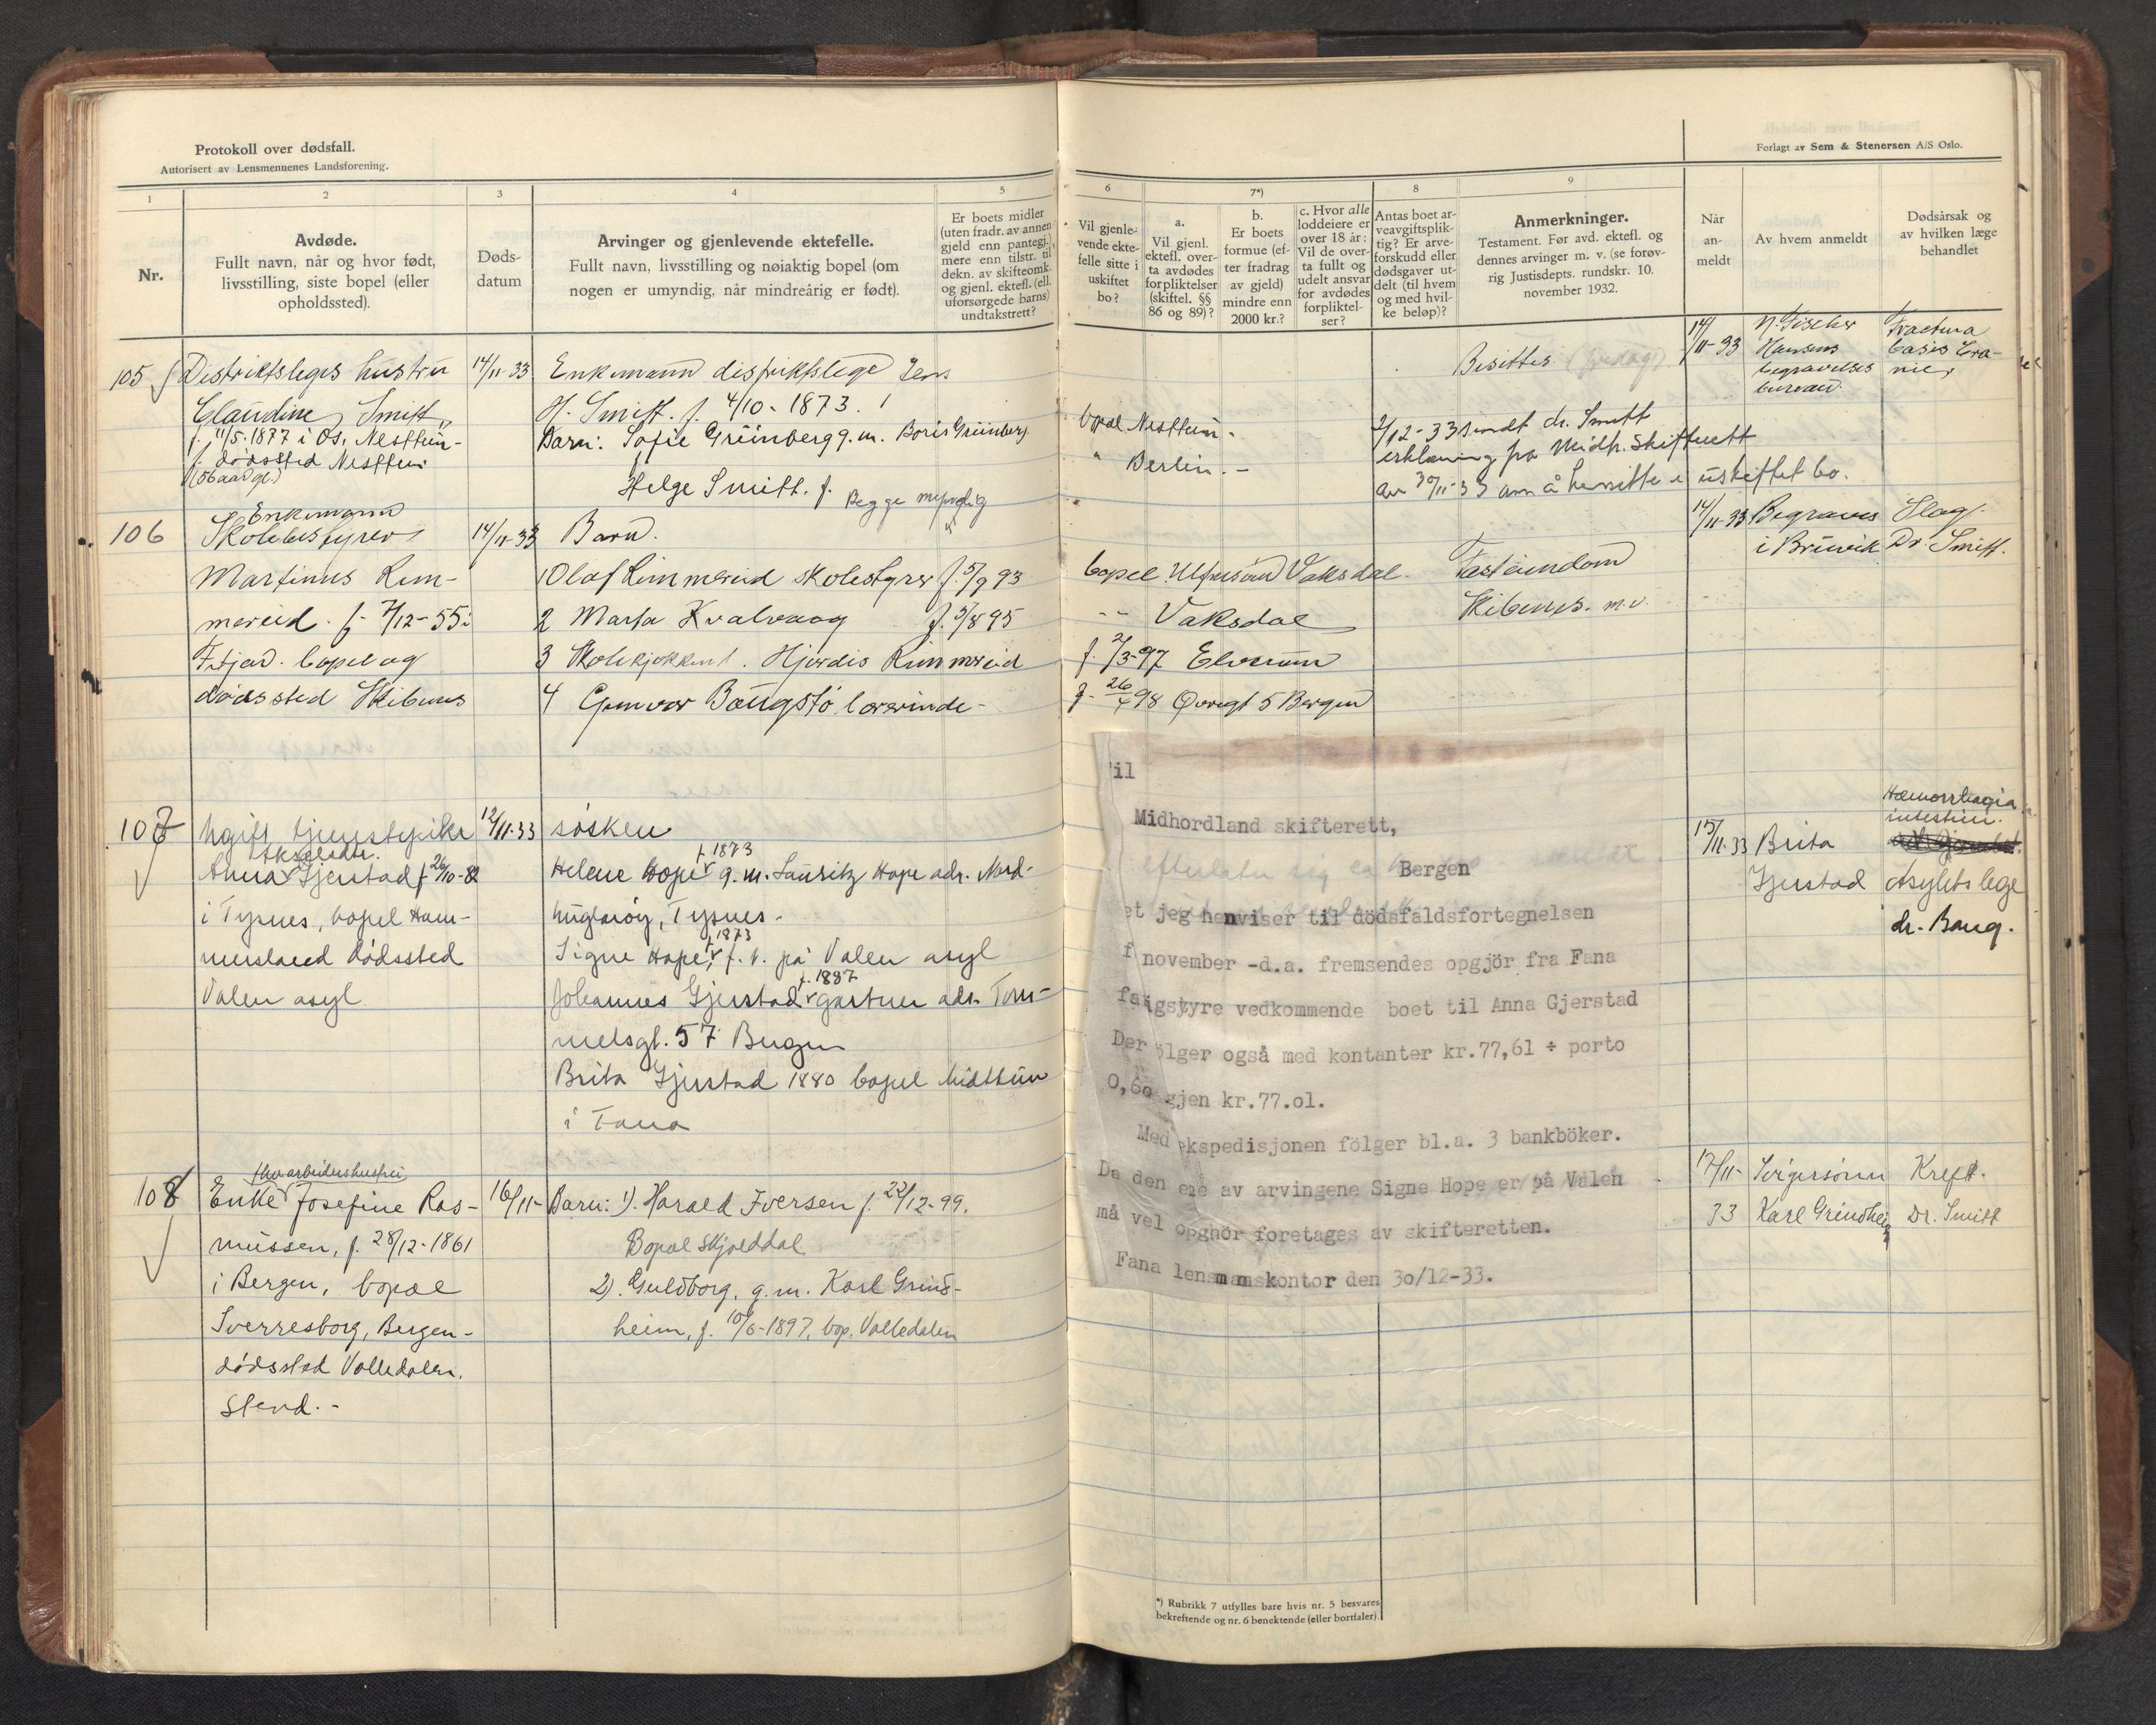 Protokoll over dødsfall.
Autorisert av Lensmennenes Landsforening.
1
2
3
4
5
Nr.
Avdøde.
Fullt navn, når og hvor født,
livsstilling, siste bopel (eller
opholdssted).
Døds-
datum
Arvinger og gjenlevende ektefelle.
Fullt navn, livsstilling og nøiaktig bopel (om
nogen er umyndig, når mindreårig er født).
Er boets midler
(uten fradr. av annen
gjeld enn pantegj.)
mere enn tilstr. til
dekn. av skifteomk.
og gjenl. ektefl. (ell.
uforsørgede barns)
undtakstrett?
105
Distriktsleges hustru
Claudine Smitt,
f. 11/5-1877 i Os, Nesttun-
f. dødssted Nesttun
(56 aar gl.)
14/11-33
Enkemann distriktslege Jens
H. Smitt. f. 4/10-1873.
Barn: Sofie Grünberg g.m. Boris Grünberg
Helge Smitt. f.
Begge myndig
106
Enkemann
Skolebestyrer
Martinus Rim-
mereid. f. 7/12-55 i
Fitjar. bopel og
dødssted Skibenes
14/11-33
Barn.
1 Olaf Rimmereid skolestyrer f. 5/9 93
2 Marta Kvalvaag f. 5/8 95
3 Skolekjøkkenl. Hjørdis Rimmereid
4 Gunvor Baugstø lærerinde-
107
Ugift tjenestepike
Akselsdtr.
Anna Gjerstad f. 26/10-82
i Tysnes, bopel Ham-
mersland dødssted
Valen asyl
12/11-33
søsken
f. 1873
Helene Hope g.m. Lauritz Hope adr. Nord-
huglaøy, Tysnes-
f. 1873
Signe Hope, f. t. på Valen asyl
f. 1887
Johannes Gjerstad gartner adr. Tor-
melsgt. 57 Bergen
Brita Gjerstad 1880 bopel Midttun
i Fana
108
fhv. arbeiderhustru
Enke Josefine Ras-
mussen, f. 28/12-1861
i Bergen, bopæl
Sverresborg, Bergen-
dødssted Valledalen.
Stend.-
16/11-
Barn: 1). Harald Iversen f. 22/12-99.
Bopæl Skjolddal
2). Guldborg, g.m. Karl Grind-
heim, f. 10/6-1897, bop. Valledalen
Forlagt av Sem & Stenersen A/S Oslo.
6
7*)
8
9
Vil gjenle-
vende ekte-
felle sitte i
uskiftet
bo?
a.
Vil gjenl.
ektefl. over-
ta avdødes
forpliktelser
(skiftel. §§
86 og 89)?
b.
Er boets
formue (ef-
ter fradrag
av gjeld)
mindre enn
2000 kr.?
c. Hvor alle
loddeiere er
over 18 år:
Vil de over-
ta fullt og
udelt ansvar
for avdødes
forpliktel-
ser?
Antas boet ar-
veavgiftsplik-
tig? Er arve-
forskudd eller
dødsgaver ut-
delt (til hvem
og med hvil-
ke beløp)?
Anmerkninger.
Testament. Før avd. ektefl. og
dennes arvinger m. v. (se forøv-
rig Justisdepts. rundskr. 10.
november 1932.
Når
an-
meldt
Av hvem anmeldt
Dødsårsak og
av hvilken læge
behandlet
bopæl Nesttun-
" Berlin.-
Bisittes (fredag)
2/12-33 sendt dr. Smitt
erklæring fra Midh. skifterett
av 30/11-33 om å hensitte i uskiftet bo.
14/11-33
Hansens
begravelses
bureau.
Fractura
basis Cra-
nie,
bopel Vaksdal.
" Vaksdal
f. 2/3-97 Elverum
f. 26/4 98 Øvregt 5 Bergen
Fasteiendom
Skibenes. m.v.
14/11-33
Begraves
i Bruvik
Slag.
Dr. Smitt.
il
Midhordland skifterett,
Bergen
et jeg henviser til dödsfaldsfortegnelsen
f november -d.a. fremsendes opgjör fra Fana
igstyre vedkommende boet til Anna Gjerstad
Der ölger også med kontanter kr.77,61 ÷ porto
0,60 gjen kr.77.01.
Med ekspedisjonen fölger bl.a. 3 bankböker.
Da den ene av arvingene Signe Hope er på Valen
må vel opghör foretages av skifteretten.
Fana lensmannskontor den 30/12-33.
15/11-33
Brita
Gjerstad
Hæmorrhagia
intestin.
Asylets lege
dr. Baug.
17/11-
33
Svigersønn
Karl Grindheim
Kreft.
Dr. Smitt
*) Rubrikk 7 utfylles bare hvis nr. 5 besvares
bekreftende og nr. 6 benektende (eller bortfaler).